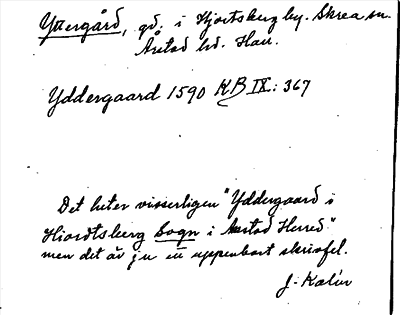 Yttergård, gd. i Hjortsberg by. Skrea sn.
Årstad hd. Hall.
Yddergaard 1590 KB IX: 367
Det heter visserligen "Yddergaard i
Hiordtsberg Sogn i Aarstad Herred"
men det är ju ett uppenbart skrivfel.
J. Kalén